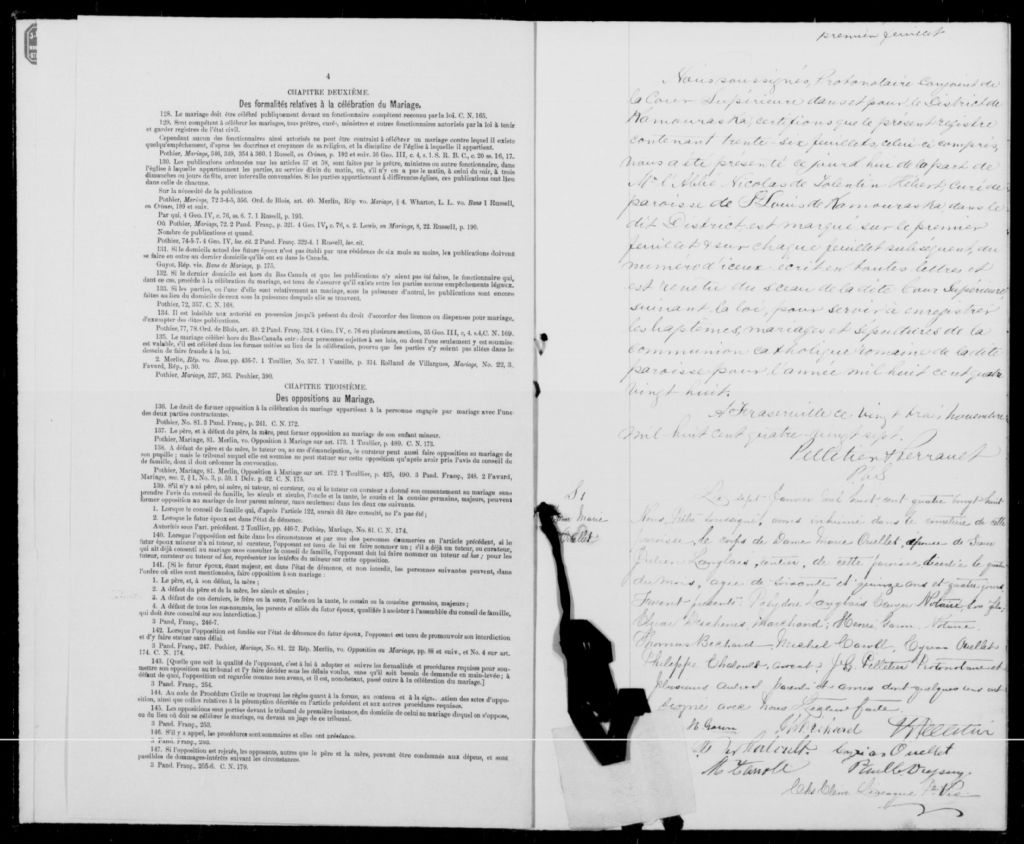 4
CHAPITRE DEUXIÈME.
Des formalités relatives à la célébration du Mariage.
128. Le mariage doit être célébré publiquement devant un fonctionnaire compétent reconnu par la loi. C. N. 165.
129. Sont compétents à célébrer les mariages, tous prêtres, curés, ministres et autres fonctionnaires autorisés par la loi à tenir
et garder registres de l'état civil.
Cependant aucun des fonctionnaires ainsi autorisés ne peut être contraint à célébrer un mariage contre lequel il existe
quelqu'empêchement, d'après les doctrines et croyances de sa religion, et la discipline de l'église à laquelle il appartient.
Pothier, Mariage, 346, 349, 354 à 360. 1 Russell, on Crimes, p. 192 et suiv. 36 Geo. III, c. 4, s. 1. S. R. B. C., c. 20 ss. 16, 17.
130. Les publications ordonnées par les articles 57 et 58, sont faites par le prêtre, ministre ou autre fonctionnaire, dans
l'église à laquelle appartiennent les parties, au service divin du matin, ou, s'il n'y en a pas le matin, à celui du soir, à trois
dimanches ou jours de fête, avec intervalle convenables. Si les parties appartiennent à différentes églises, ces publications ont lieu
dans celle de chacune.
Sur la nécessité de la publication
Pothier, Mariage, 72 3-4-5, 356. Ord. de Blois, art. 40. Merlin, Rép vo. Mariage, § 4. Wharton, L. L. vo. Bans 1 Russell,
on Crimes, 189 et suiv.
Par qui, 4 Geo. IV, c. 76, ss. 6. 7. 1 Russell, p. 193.
Où Pothier, Mariage, 72. 2 Pand. Franç., p. 321. 4 Geo. IV, c. 76, s. 2. Lewis, on Marriage, 8, 22. Russell, p. 190.
Nombre de publications et quand.
Pothier, 74-5-7. 4 Geo. IV, loc. cit. 2 Pand. Franç. 322-4. 1 Russell, loc. cit.
131. Si le domicile actuel des futurs époux n'est pas établi par une résidence de six mois au moins, les publications doivent
se faire en outre au dernier domicile qu'ils ont eu dans le Canada.
Guyot, Rép. vis. Bans de Mariage, p. 175.
132. Si le dernier domicile est hors du Bas-Canada et que les publications n'y aient pas été faites, le fonctionnaire qui,
dans ce cas, procède à la célébration du mariage, est tenu de s'assurer qu'il existe entre les parties aucuns empêchements légaux.
133. Si les parties, ou l'une d'elle sont relativement au mariage, sous la puissance d'autrui, les publications sont encore
faites au lieu du domicile de ceux sous la puissance desquels elle se trouvent.
Pothier, 72, 357. C. N. 168.
134. Il est loisible aux autorités en possession jusqu'à présent du droit d'accorder des licences ou dispenses pour mariage,
d'exempter des dites publications.
Pothier, 77, 78. Ord. de Blois, art. 40. 2 Pand. Franç. 324. 4 Geo. IV, c. 76 en plusieurs sections, 35 Geo. III, c, 4. s.4, C. N. 169.
135. Le mariage célébré hors du Bas-Canada entre deux personnes sujettes à ses lois, ou dont l'une seulement y est soumise
est valable, s'il est célébré dans les formes usitées au lieu de la célébration, pourvu que les parties n'y soient pas allées dans le
dessein de faire fraude à la loi.
2. Merlin, Rép. vo. Bans, pp. 436-7. 1 Toullier, No. 577. 1 Vazeille, p. 334 Rolland de Villargues, Mariage, No. 22, 3,
Favard, Rép., p. 30.
Pothier, Mariage, 327, 363. Peuhier, 390.
CHAPITRE TROISIÈME.
Des oppositions au Mariage.
136. Le droit de former opposition à la célébration du mariage appartient à la personne engagée par mariage avec l'une
des deux parties contractantes.
Pothier, No. 81. 3 Pand. Franç., p. 241. C. N. 172.
137. Le père, et à défaut du père, la mère, peut former opposition au mariage de son enfant mineur.
Pothier, Mariage, 81. Merlin, vo. Opposition à Mariage sur art. 173. 1 Toullier, p. 489. C. N. 173.
138. A défaut de père et de mère, le tuteur ou, au cas d'émancipation, le curateur peut aussi faire opposition au mariage de
son pupille; mais le tribunal auquel elle est soumise ne peut statuer sur cette opposition qu'après avoir pris l'avis du conseil de
famille, dont il doit ordonner la convocation.
Pothier, Mariage, 81. Merlin, Opposition à Mariage sur art. 172. 1 Toullier, p. 425, 490. 3 Pand. Franç., 248. 2 Favard,
Mariage, sec. 2, § 1, No. 3, p. 59. 1 Delv. p. 62. C. N. 175.
139. S'il n'y a ni père, ni mère, ni tuteur, ni curateur, ou si le tuteur ou curateur a donné son consentement au mariage sans
prendre l'avis du conseil de famille, les aïeuls et aïeules, l'oncle et la tante, le cousin et la cousine germains, majeurs, peuvent
former opposition au mariage de leur parent mineur, mais seulement dans les deux cas suivants.
1. Lorsque le conseil de famille qui, d'après l'article 122, aurait dû être consulté, ne l'a pas été;
2. Lorsque le futur époux est dans l'état de démence.
Autorités sous l'art. précédent. 2 Toullier, pp. 446-7. Pothier, Mariage, No. 81. C. N. 174.
140. Lorsque l'opposition est faite dans les circonstances et par une des personnes énumérées en l'article précédent, si le
futur époux mineur n'a ni tuteur, ni curateur, l'opposant est tenu de lui en faire nommer un; s'il a déjà un tuteur, ou curateur,
qui ait déjà consenti au mariage sans consulter le conseil de famille, l'opposant doit lui faire nommer un tuteur ad hoc; pour les
tuteur, curateur ou tuteur ad hoc, représenter les intérêts du mineur sur cette opposition.
141. [Si le futur époux, étant majeur, est dans l'état de démence, et non interdit, les personnes suivantes peuvent, dans
l'ordre où elles sont mentionnées, faire opposition à son mariage:
1. Le père, et, à son défaut, la mère;
2. A défaut du père et de la mère, les aïeuls et aïeules;
3. A défaut de ces derniers, le frère ou la sœur, l'oncle ou la tante, le cousin ou la cousine germains, majeurs;
4. A défaut de tous les sus-nommés, les parents et alliés du futur époux, qualifiés à assister à l'assemblée du conseil de famille,
qui doit être consulté sur son interdiction.]
3 Pand, Franç., 246-7.
142. Lorsque l'opposition est fondée sur l'état de démence du futur époux, l'opposant est tenu de promouvoir son interdiction
et d'y faire statuer sans délai.
3 Pand. Franç., 247. Pothier, Mariage, No. 81. 22 Rép. Merlin, vo. Opposition au Mariage, pp. 88 et suiv., et No. 4 sur art.
174. C. N. 174.
143. [Quelle que soit la qualité de l'opposant, c'est à lui à adopter et suivre les formalités et procédures requises pour sou-
mettre son opposition au tribunal et l'y faire décider sous les délais voulus, sans qu'il soit besoin de demande en main-levée; à
défaut de quoi, l'opposition est regardée comme non avenu, et il est, nonobstant, passé outre à la célébration du mariage.]
3 Pand. Franç., 254.
144. Au code de Procédure Civile se trouvent les règles quant à la forme, au contenu et à la sign...ation des actes d'oppo-
sition, ainsi que celles relatives à la péremption décrétée en l'article précédent et aux autres procédures requises.
145. Les oppositions sont portées devant le tribunal de première instance, du domicile de celui au mariage duquel on s'oppose,
ou du lieu où doit se célébrer le mariage, ou devant un juge de ce tribunal.
3 Pand. Franç., 253.
146. S'il y a appel, les procédures sont sommaires et elles ont préséance.
3 Pand. Franç., 260.
147. Si l'opposition est rejetée, les opposants, autres que le père et la mère, peuvent être condamnés aux dépens, et sont
passibles de dommages-intérêts suivant les circonstances.
3 Pand. Franç., 255-6. C. N. 179.
premier feuillet
Nous soussignés, Protonotaire Conjoint de
la Cour Supérieure dans et pour le District de
Kamouraska, certifions que le présent registre
contenant trente-six feuillets, celui ci compris,
nous a été présenté ce jourd'hui de la part de
Mr l'Abbé Nicolas de Tolentin Hébert Curé de
paroisse de St Louis de Kamouraska dans le
dit District est marqué sur le premier
feuillet & sur chaque feuillet subséquent, du
numéro d'iceux écrit en toutes lettres et
est revêtu du sceau de la dite Cour Supérieure
suivant la loi, pour servir à enregistrer
les baptêmes, mariages et sépultures de la
communion catholique romaine de la dite
paroisse pour l'année mil huit cent quatre
vingt huit.
A Fraserville ce vingt trois novembre
mil huit cent quatre vingt sept
Pelletier & Perrault
P.C.S.
S 1
Dame Marie
Ouellet
Le sept Janvier mil huit cent quatre vingt huit
Nous Prêtre soussigné, avons inhumé dans le cimetière de cette
paroisse, le corps de Dame Marie Ouellet, épouse de Jean
Julien Langlais, rentier, de cette paroisse, décédée le quatre
du mois, agée de soixante et quinze ans et quatre jours.
Furent présents: Polydore Langlais Ecuyer Notaire, son fils,
Elzéar Deschenes Marchand, Henri Garon, Notaire
Thomas Béchard, Michel Caroll, Cyrias Ouellet
Philippe Chaloult, avocat, J. B. Pelletier Protonotaire et
plusieurs autres parents et amis dont quelques uns ont
signé avec nous Lecture faite.
H Garon
JB Pelletier
Cyrias Ouellet
M Carroll